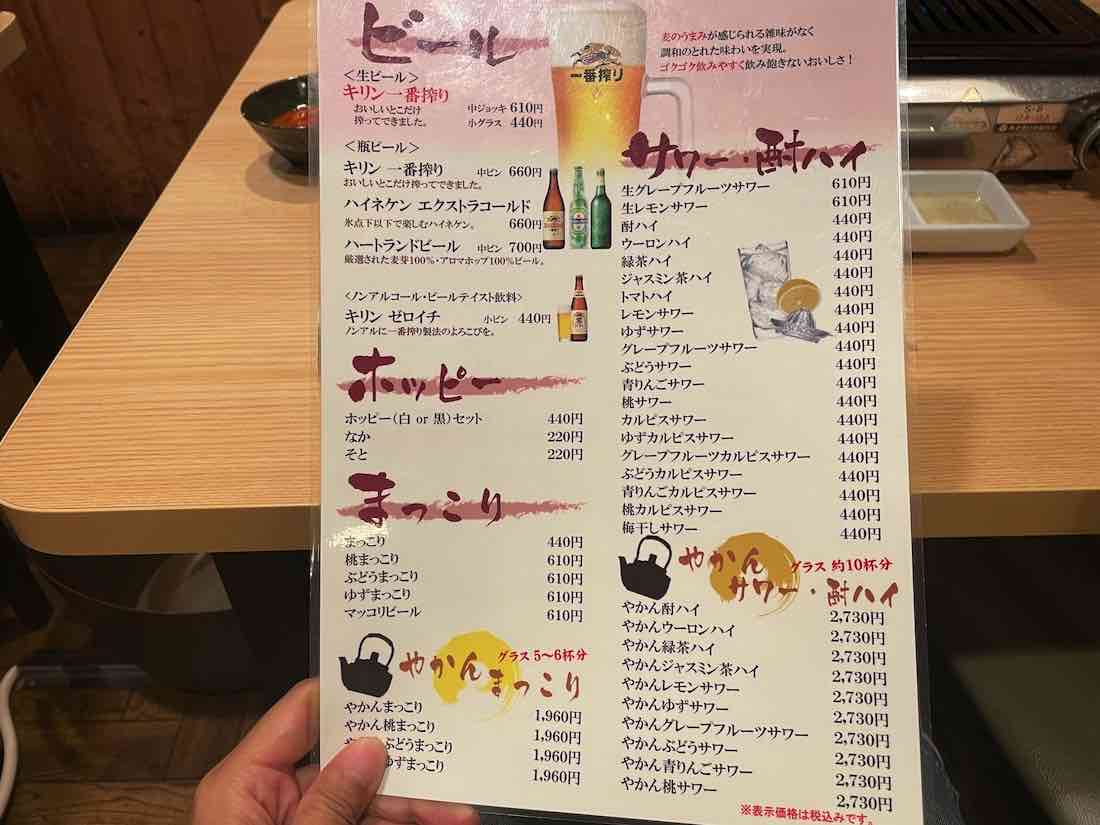 ビール
<生ビール>
キリン一番搾り
おいしいとこだけ
搾ってできました。
中ジョッキ 610円
小グラス 440円
一番搾り
麦のうまみが感じられる雑味がなく
調和のとれた味わいを実現。
ゴクゴク飲みやすく飲み飽きないおいしさ！
<瓶ビール>
キリン 一番搾り 中ビン 660円
おいしいとこだけ搾ってできました。
ハイネケン エクストラコールド
氷点下以下で楽しむハイネケン。 660円
ハートランドビール 中ビン 700円
厳選された麦芽100%・アロマホップ100%ビール。
<ノンアルコール・ビールテイスト飲料>
キリン ゼロイチ 小ビン 440円
ノンアルに一番搾り製法のよろこびを。
ホッピー
ホッピー（白 or 黒）セット 440円
なか 220円
そと 220円
まっこり
まっこり 440円
桃まっこり 610円
ぶどうまっこり 610円
ゆずまっこり 610円
マッコリビール 610円
やかんまっこり
グラス 5〜6杯分
やかんまっこり 1,960円
やかん桃まっこり 1,960円
ぶどうまっこり 1,960円
ゆずまっこり 1,960円
サワー・酎ハイ
生グレープフルーツサワー 610円
生レモンサワー 610円
酎ハイ 440円
ウーロンハイ 440円
緑茶ハイ 440円
ジャスミン茶ハイ 440円
トマトハイ 440円
レモンサワー 440円
ゆずサワー 440円
グレープフルーツサワー 440円
ぶどうサワー 440円
青りんごサワー 440円
桃サワー 440円
カルピスサワー 440円
ゆずカルピスサワー 440円
グレープフルーツカルピスサワー 440円
ぶどうカルピスサワー 440円
青りんごカルピスサワー 440円
桃カルピスサワー 440円
梅干しサワー 440円
やかん
サワー・酎ハイ
グラス 約10杯分
やかん酎ハイ 2,730円
やかんウーロンハイ 2,730円
やかん緑茶ハイ 2,730円
やかんジャスミン茶ハイ 2,730円
やかんレモンサワー 2,730円
やかんゆずサワー 2,730円
やかんグレープフルーツサワー 2,730円
やかんぶどうサワー 2,730円
やかん青りんごサワー 2,730円
やかん桃サワー 2,730円
※表示価格は税込みです。